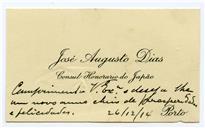 José Augusto Dias
Consul Honorario do Japão
Cumprimenta V. Ex.ª e deseja-lhe
um novo anno cheio de prosperidades
e felicidades.
26/12/14 Porto